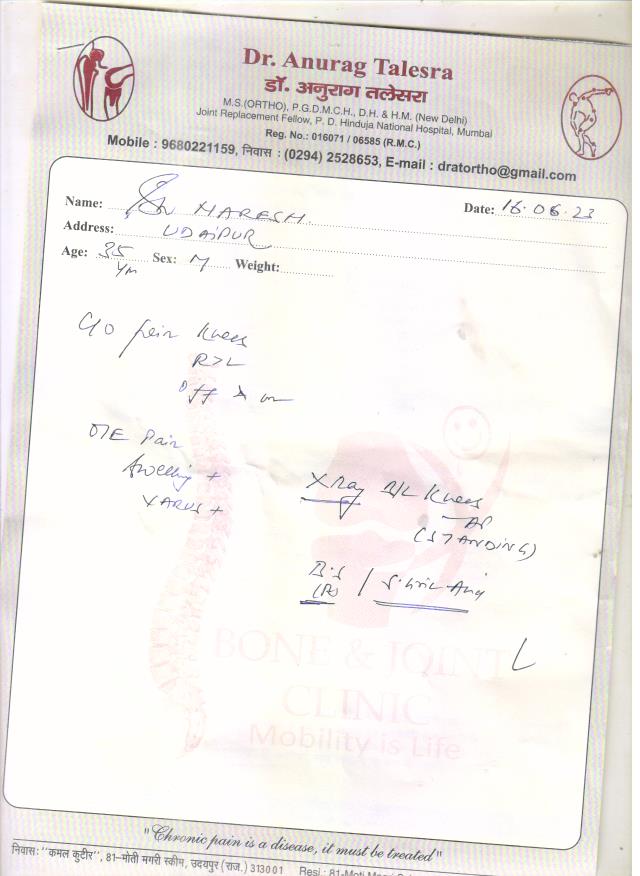 Dr. Anurag Talesra
डॉ. अनुराग तलेसरा
M.S.(ORTHO), P.G.D.M.C.H., D.H. & H.M. (New Delhi)
Joint Replacement Fellow, P. D. Hinduja National Hospital, Mumbai
Reg. No.: 016071 / 06585 (R.M.C.)
Mobile : 9680221159, निवास : (0294) 2528653, E-mail : dratortho@gmail.com
Name: NARESH. Date: 16.06.23
Address: UDAIPUR
Age: 35 Sex: M Weight:
C/O pain knees
R>L
Off & on
O/E Pain
Swelling +
VARUS +
X Ray B/L Knees
AP
(STANDING)
B.S
BONE & JOINT
CLINIC
Mobility is Life
"Chronic pain is a disease, it must be treated"
निवास: "कमल कुटीर", 81-मोती मगरी स्कीम, उदयपुर (राज.) 313001